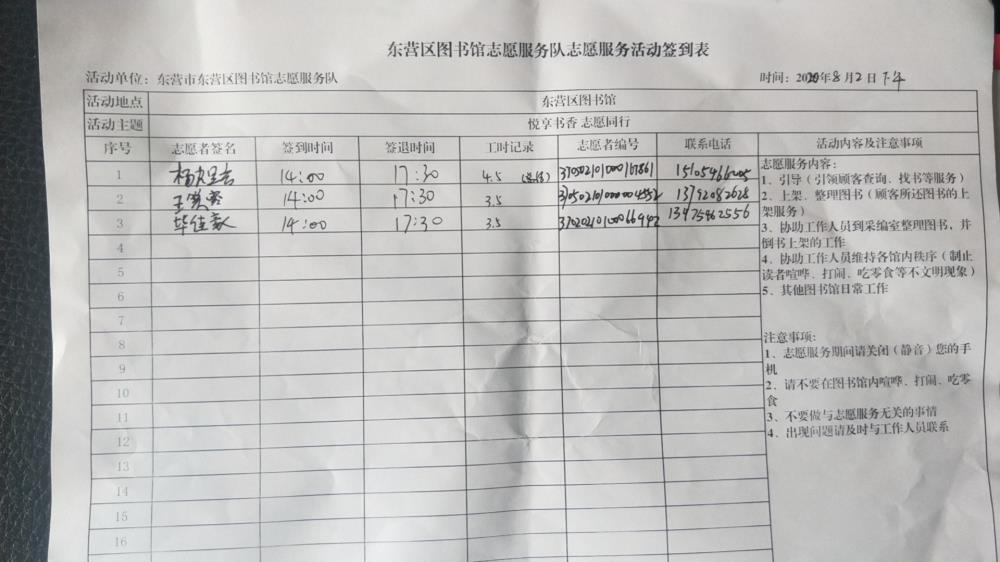 东营区图书馆志愿服务队志愿服务活动签到表
活动单位：东营市东营区图书馆志愿服务队 时间：2020年8月2日下午
活动地点 东营区图书馆
活动主题 悦享书香 志愿同行
序号 志愿者签名 签到时间 签退时间 工时记录 志愿者编号 联系电话 活动内容及注意事项
1 14:00 17:30 4.5
2 14:00 17:30 3.5 13792082628
3 14:00 17:30 3.5 13475462556
4
5
6
7
8
9
10
11
12
13
14
15
16
志愿服务内容：
1、引导（引领顾客查询、找书等服务）
2、上架、整理图书（顾客所还图书的上
架服务）
3、协助工作人员到采编室整理图书，并
倒书上架的工作
4、协助工作人员维持各馆内秩序（制止
读者喧哗、打闹、吃零食等不文明现象）
5、其他图书馆日常工作
注意事项：
1、志愿服务期间请关闭（静音）您的手
机
2、请不要在图书馆内喧哗、打闹、吃零
食
3、不要做与志愿服务无关的事情
4、出现问题请及时与工作人员联系